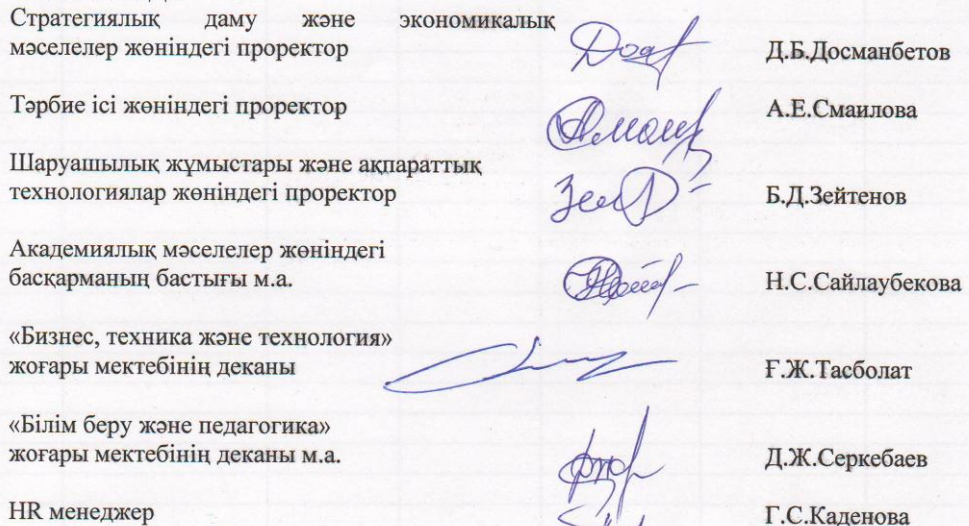 Стратегиялық даму және экономикалық
мәселелер жөніндегі проректор Д.Б.Досманбетов
Тәрбие ісі жөніндегі проректор А.Е.Смаилова
Шаруашылық жұмыстары және ақпараттық
технологиялар жөніндегі проректор Б.Д.Зейтенов
Академиялық мәселелер жөніндегі
басқарманың бастығы м.а. Н.С.Сайлаубекова
«Бизнес, техника және технология»
жоғары мектебінің деканы Ғ.Ж.Тасболат
«Білім беру және педагогика»
жоғары мектебінің деканы м.а. Д.Ж.Серкебаев
HR менеджер Г.С.Каденова